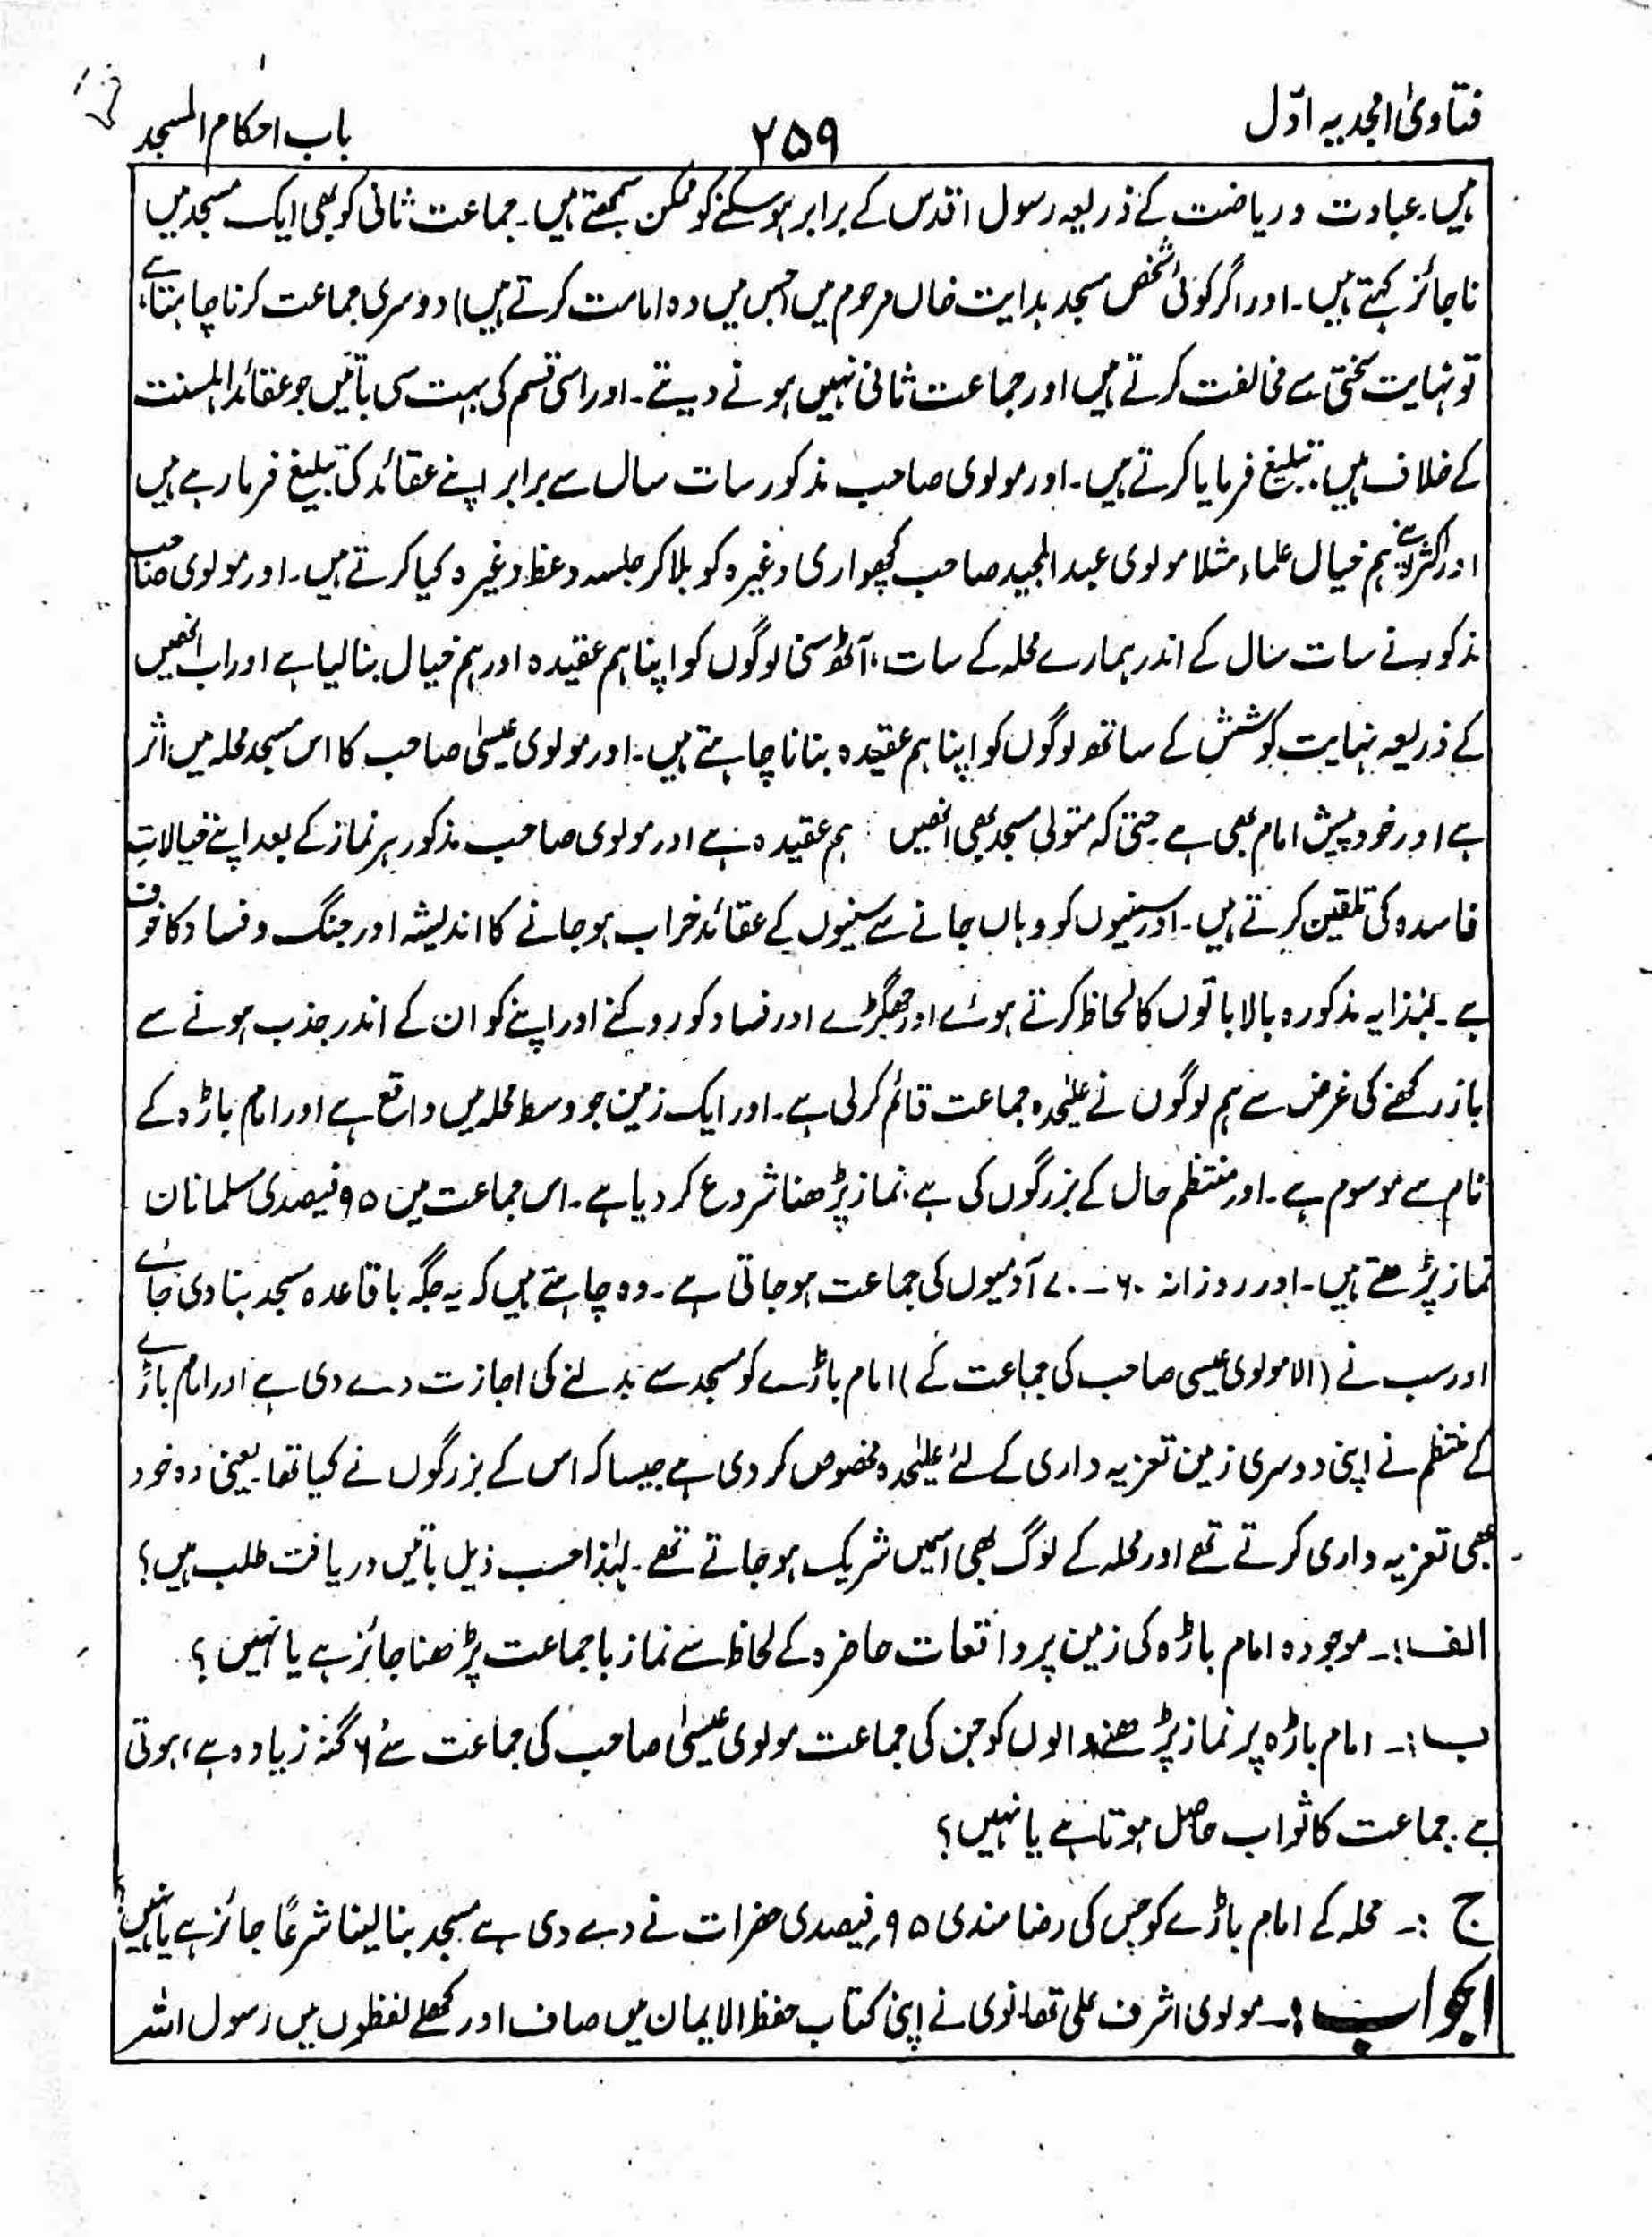 فتاویٰ امجدیہ اوّل
۲۵۹
باب احکام المسجد
ہیں۔ عبادت و ریاضت کے ذریعہ رسول اقدس کے برابر ہو سکنے کو ممکن سمجھتے ہیں۔ جماعت ثانی کو بھی ایک مسجد میں
ناجائز کہتے ہیں۔ اور اگر کوئی شخص مسجد ہدایت خاں مرحوم میں (جس میں وہ امامت کرتے ہیں) دوسری جماعت کرنا چاہتا ہے،
تو نہایت سختی سے مخالفت کرتے ہیں اور جماعت ثانی نہیں ہونے دیتے۔ اور اسی قسم کی بہت سی باتیں جو عقائد اہلسنت
کے خلاف ہیں، تبلیغ فرمایا کرتے ہیں۔ اور مولوی صاحب مذکور سات سال سے برابر اپنے عقائد کی تبلیغ فرما رہے ہیں
اور اکثر اپنے ہم خیال علماء مثلا مولوی عبد المجید صاحب کچھواری وغیرہ کو بلا کر جلسہ وعظ وغیرہ کیا کرتے ہیں۔ اور مولوی صاحب
مذکور نے سات سال کے اندر ہمارے محلہ کے سات، آٹھ سنی لوگوں کو اپنا ہم عقیدہ اور ہم خیال بنا لیا ہے اور اب انھیں
کے ذریعہ نہایت کوشش کے ساتھ لوگوں کو اپنا ہم عقیدہ بنانا چاہتے ہیں۔ اور مولوی عیسیٰ صاحب کا اس مسجد محلہ میں اثر
ہے اور خود پیش امام بھی ہے حتی کہ متولی مسجد بھی انھیں ہم عقیدہ ہے اور مولوی صاحب مذکور ہر نماز کے بعد اپنے خیالات
فاسدہ کی تلقین کرتے ہیں۔ اور سنیوں کو وہاں جانے سے سنیوں کے عقائد خراب ہو جانے کا اندیشہ اور جنگ و فساد کا خوف
ہے۔ لہٰذا یہ مذکورہ بالا باتوں کا لحاظ کرتے ہوئے اور جھگڑے اور فساد کو روکنے اور اپنے کو ان کے اندر جذب ہونے سے
باز رکھنے کی غرض سے ہم لوگوں نے علیٰحدہ جماعت قائم کر لی ہے۔ اور ایک زمین جو وسط محلہ میں واقع ہے اور امام باڑہ کے
نام سے موسوم ہے۔ اور منتظم حال کے بزرگوں کی ہے، نماز پڑھنا شروع کر دیا ہے۔ اس جماعت میں ۹۵ فیصدی مسلمانان
نماز پڑھتے ہیں۔ اور روزانہ ۶۰ــ۷۰ آدمیوں کی جماعت ہو جاتی ہے۔ وہ چاہتے ہیں کہ یہ جگہ باقاعدہ مسجد بنا دی جائے
اور سب نے (الا مولوی عیسی صاحب کی جماعت کے) امام باڑے کو مسجد سے بدلنے کی اجازت دے دی ہے اور امام باڑے
کے منتظم نے اپنی دوسری زمین تعزیہ داری کے لئے علیٰحدہ مخصوص کر دی ہے جیسا کہ اس کے بزرگوں نے کیا تھا۔ یعنی وہ خود
بھی تعزیہ داری کرتے تھے اور محلہ کے لوگ بھی اسمیں شریک ہو جاتے تھے۔ لہٰذا حسب ذیل باتیں دریافت طلب ہیں؟
الف :۔ موجودہ امام باڑہ کی زمین پر واقعات حاضرہ کے لحاظ سے نماز باجماعت پڑھنا جائز ہے یا نہیں؟
ب :۔ امام باڑہ پر نماز پڑھنے والوں کو جن کی جماعت مولوی عیسیٰ صاحب کی جماعت سے ۶ گنہ زیادہ ہے، ہوتی
ہے۔ جماعت کا ثواب حاصل ہوتا ہے یا نہیں؟
ج :۔ محلہ کے امام باڑے کو جس کی رضا مندی ۹۵ فیصدی حضرات نے دے دی ہے مسجد بنا لینا شرعًا جائز ہے یا نہیں؟
الجواب :۔ مولوی اشرف علی تھانوی نے اپنی کتاب حفظ الایمان میں صاف اور کھلے لفظوں میں رسول اللہ